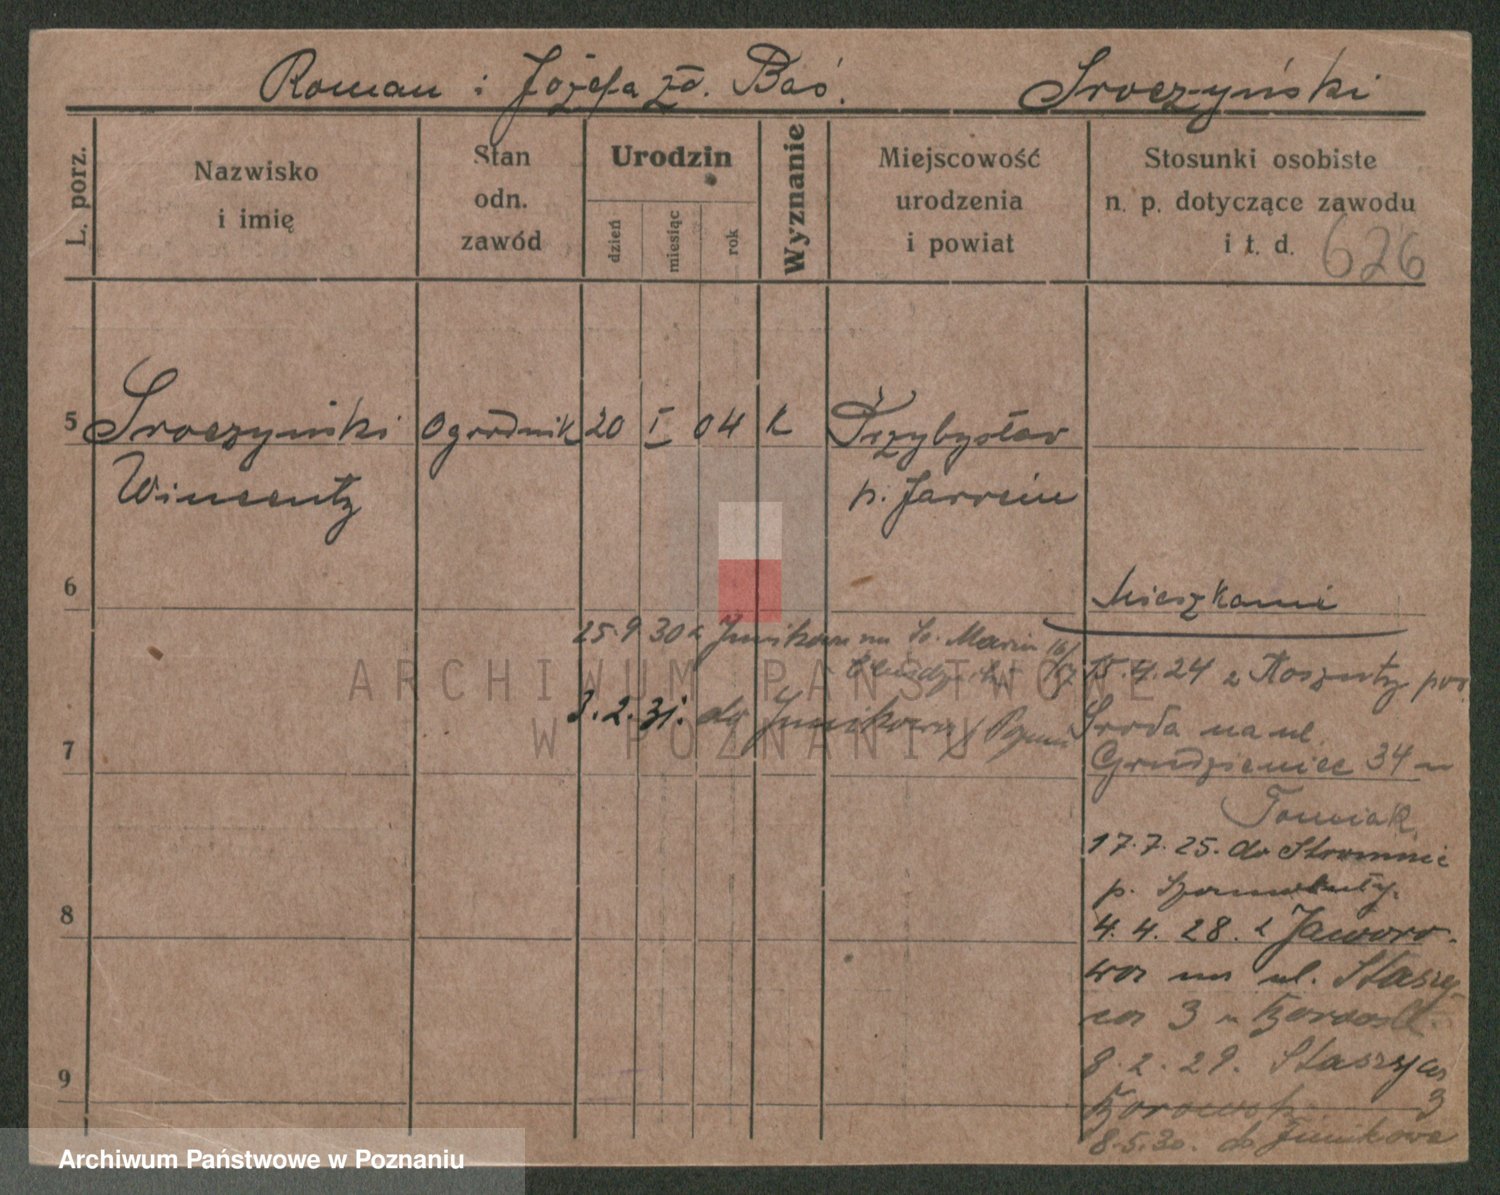 Roman i Józefa zd. Baś. Sroczyński
L. porz.
Nazwisko
i imię
Stan
odn.
zawód
Urodzin
dzień
miesiąc
rok
Wyznanie
Miejscowość
urodzenia
i powiat
Stosunki osobiste
n. p. dotyczące zawodu
i t. d.
626
5 Sroczyński Ogrodnik 20 I 04 k Przybysław
Wincenty p. Jarocin
6
Mieszkanie
25.9 30 z Junikowa na św. Marcin
15.4.24 z Koszuty pow.
3.2.31. do Junikowa
Środa na ul.
7
Grudzieniec 34 u
Tomiak
17.7.25. do
p. Szamotuły.
8
4.4.28. z Jaworo-
wa na ul. Staszy-
ca 3 u
8.2.29. Staszyca
9
3
8.5.30. do Junikowa
ARCHIWUM PAŃSTWOWE
W POZNANIU
Archiwum Państwowe w Poznaniu